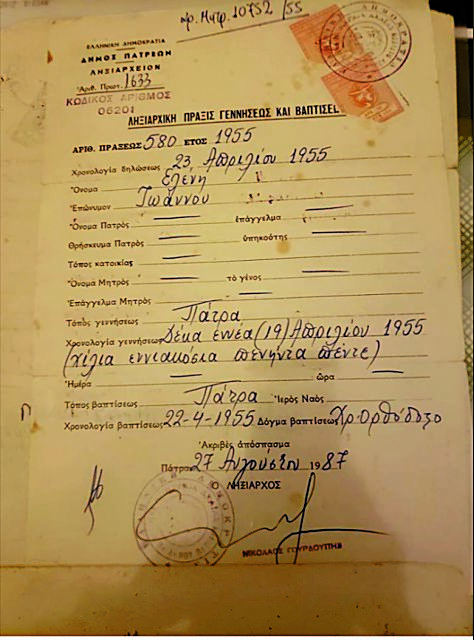 αρ. Μητρ. 10752 /55
ΕΛΛΗΝΙΚΗ ΔΗΜΟΚΡΑΤΙΑ
ΔΗΜΟΣ ΠΑΤΡΕΩΝ
ΛΗΞΙΑΡΧΕΙΟΝ
Ἀριθ. Πρωτ. 1633
ΚΩΔΙΚΟΣ ΑΡΙΘΜΟΣ
06201
ΛΗΞΙΑΡΧΙΚΗ ΠΡΑΞΙΣ ΓΕΝΝΗΣΕΩΣ ΚΑΙ ΒΑΠΤΙΣΕΩ
ΑΡΙΘ. ΠΡΑΞΕΩΣ 580 ΕΤΟΣ 1955
Χρονολογία δηλώσεως 23 Απριλίου 1955
Ὄνομα Ελένη
Ἐπώνυμον Ιωάννου
Ὄνομα Πατρὸς ἐπάγγελμα
Θρήσκευμα Πατρὸς ὑπηκοότης
Τόπος κατοικίας
Ὄνομα Μητρὸς τὸ γένος
Ἐπάγγελμα Μητρὸς
Τόπος γεννήσεως Πάτρα
Χρονολογία γεννήσεως Δέκα εννέα (19) Απριλίου 1955
(χίλια εννιακόσια πενήντα πέντε)
Ἡμέρα ὥρα
Τόπος βαπτίσεως Πάτρα Ἱερὸς Ναὸς
Χρονολογία βαπτίσεως 22-4-1955 Δόγμα βαπτίσεως Χρ. Ορθόδοξο
Ἀκριβὲς ἀπόσπασμα
Πάτραι 27 Αυγούστου 1987
Ο ΛΗΞΙΑΡΧΟΣ
ΝΙΚΟΛΑΟΣ ΓΟΥΡΔΟΥΠΗΣ